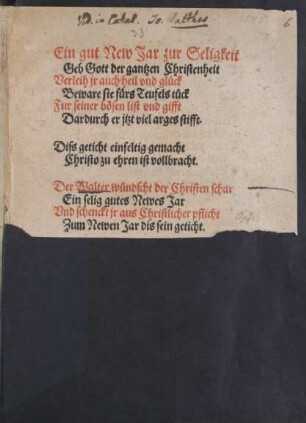 Vid. in Catal. Jo. Walther
33
6
Ein gut New Jar zur Seligkeit
Geb Gott der gantzen Christenheit
Verleih jr auch heil vnd glück
Beware sie fürs Teufels tück
Fur seiner bösen list vnd gifft
Dardurch er jtzt viel arges stifft.
Diss geticht einfeltig gemacht
Christo zu ehren ist vollbracht.
Der Walter wündscht der Christen schar
Ein selig gutes Newes Jar
Vnd schenckt jr aus Christlicher pflicht
Zum Newen Jar dis sein geticht.